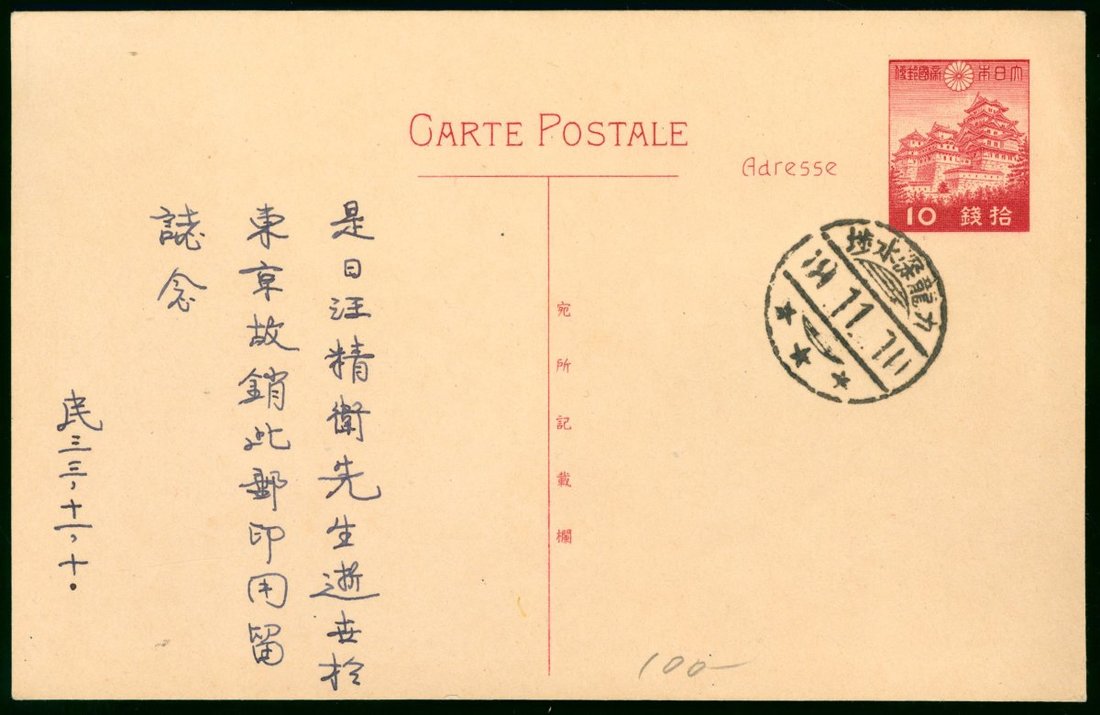 CARTE POSTALE
Adresse
大日本帝國郵便
10 拾錢
九龍深水埗
19.11.10
宛所記載欄
是日汪精衛先生逝世於
東京故銷此郵印用留
誌念
民三三,十一,十.
100-